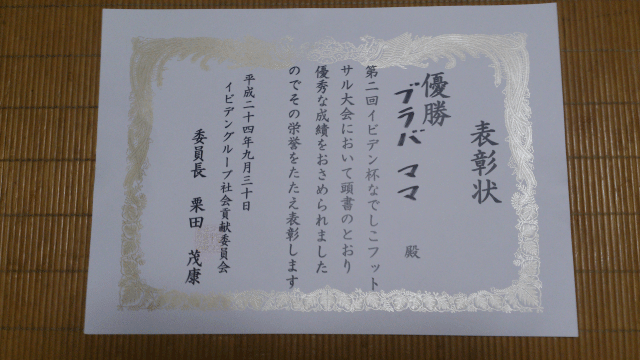 表彰状
優勝
ブラバ ママ 殿
第二回イビデン杯なでしこフット
サル大会において頭書のとおり
優秀な成績をおさめられました
のでその栄誉をたたえ表彰します
平成二十四年九月三十日
イビデングループ社会貢献委員会
委員長 栗田 茂康